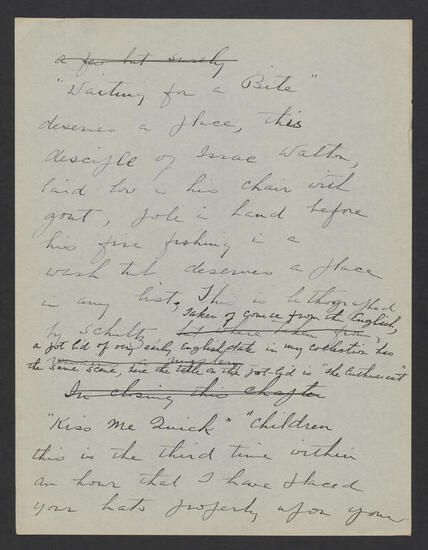 a few but surely
"Waiting for a Bite"
deserves a place, this
disciple of Isaac Walton,
laid low in his chair with
gout, pole in hand before
his fire fishing in a
wash tub deserves a place
in any list. This is lithographed
Taken of course from the English,
by Schultz but where taken from,
a pot lid of very early English date in my collection has
the same scene, here the title on the pot-lid is "The Enthusiast"
In closing this chapter
"Kiss Me Quick" "Children
this is the third time within
an hour that I have placed
your hats properly upon your